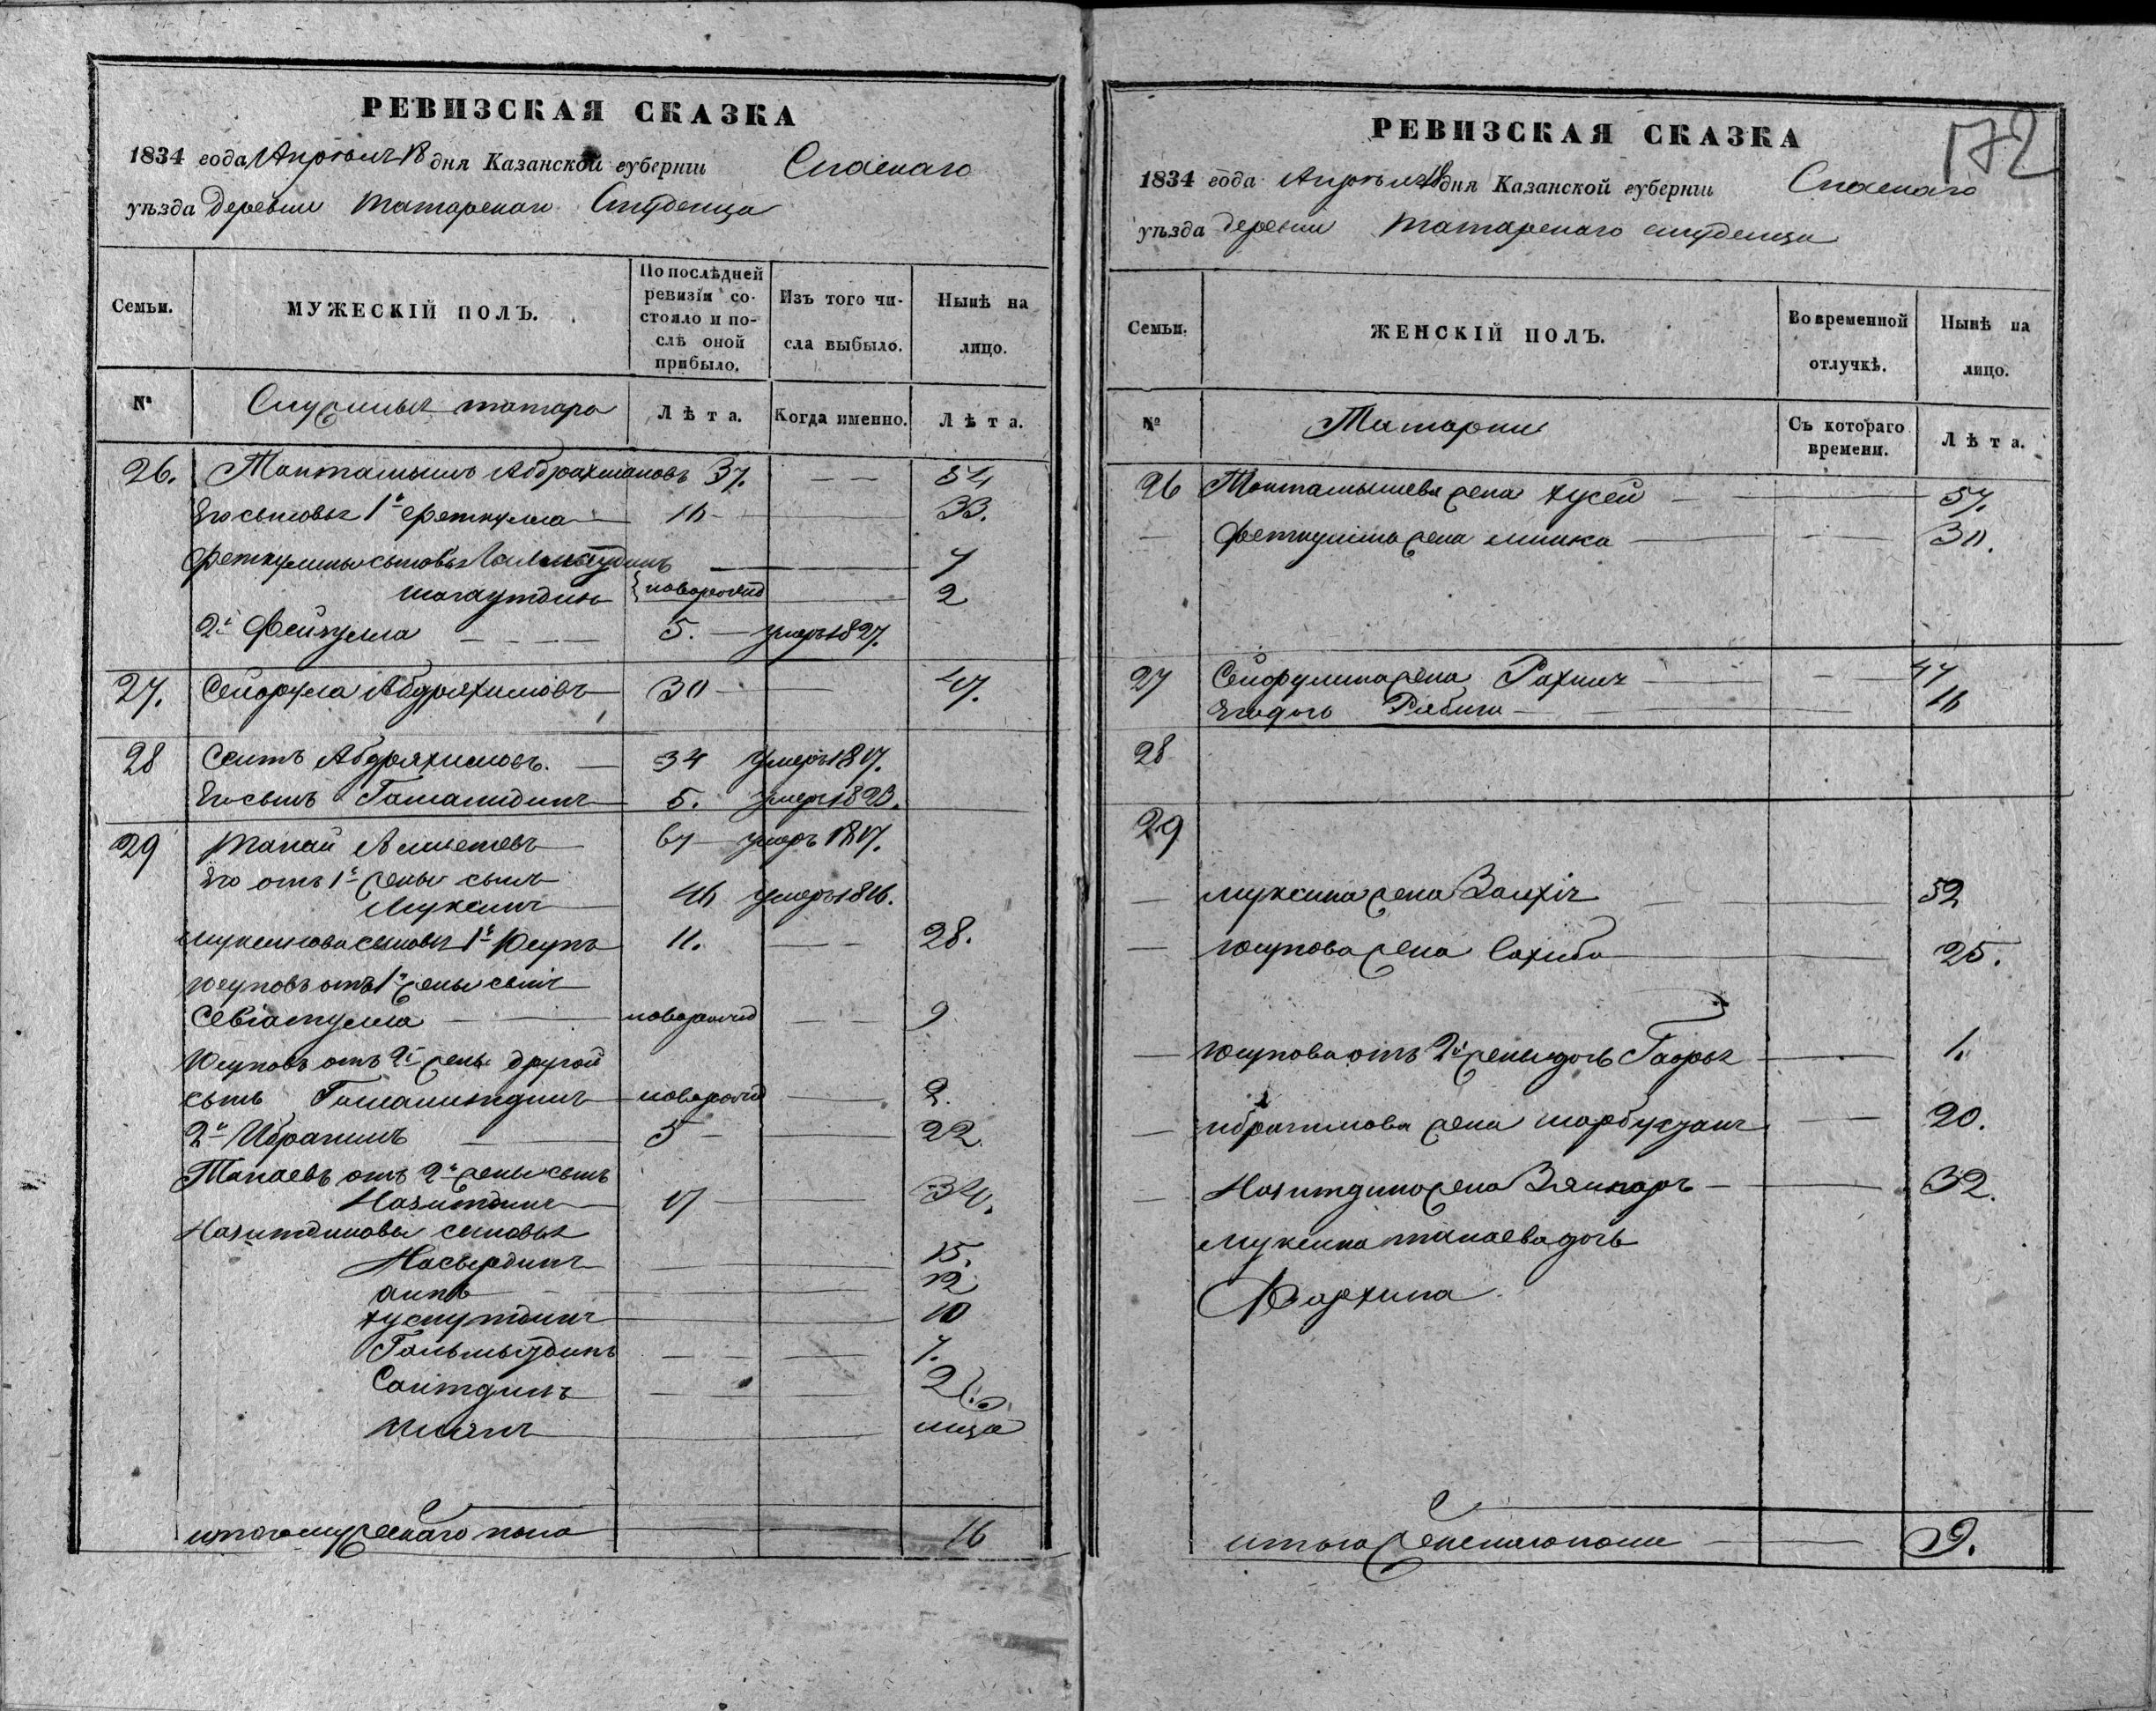 РЕВИЗСКАЯ СКАЗКА
1834 года Апреля 18 дня Казанской губерніи Спаскаго
уѣзда деревни Татарскаго Студенца
Семьи. МУЖЕСКІЙ ПОЛЪ. По послѣдней ревизіи состояло и послѣ оной прибыло. Изъ того числа выбыло. Нынѣ на лицо.
№ татаръ Лѣта. Когда именно. Лѣта.
26. Токтамышъ Абдрахмановъ 37. — — 54
Его сыновья 1й Феткулла 16 — 33.
Феткуллины сыновья — 7
Шагаутдинъ новорожд — 2
2й Фейзулла — 5. — умеръ 1827.
27. Сейфула Абдряхимовъ 30 — 47.
28 Сеитъ Абдряхимовъ. — 34 умеръ 1817.
Его сынъ 5. умеръ 1823.
29 Танай 67 умеръ 1817.
Его отъ 1й жены сынъ
Муксинъ 46 умеръ 1816.
Муксинова сыновья 1й Юсупъ 11. — — 28.
Юсуповъ отъ 1й жены сынъ
Севіатулла — новорожд — — 9
Юсуповъ отъ 2й жены другой
сынъ новорожд — 2.
2й Ибрагимъ — 5 — 22
Танаевъ отъ 2й жены сынъ
Назитдинъ 17 — 34.
Назитдиновы сыновья
Насырдинъ — 15.
— 12
Хуснутдинъ — 10
— 7.
Саитдинъ — 2

итого мужескаго пола — 16
172
РЕВИЗСКАЯ СКАЗКА
1834 года Апреля 18 дня Казанской губерніи Спаскаго
уѣзда деревни Татарскаго студенца
Семьи. ЖЕНСКІЙ ПОЛЪ. Во временной отлучкѣ. Нынѣ на лицо.
№ Татарки Съ котораго времени. Лѣта.
26 Токтамышева жена Хусей — 57.
— Феткулина жена — 30.
27 Сейфулина жена — 47
Его дочь Рабига — 16
28
29
— Муксина жена — 52
— Юсупова жена Сахиба — 25.
— Юсупова отъ 2й жены дочь — 1.
— Ибрагимова жена — 20.
— Назитдина жена — 32.
Муксина Танаева дочь
Фархина
итого женскаго пола — 9.